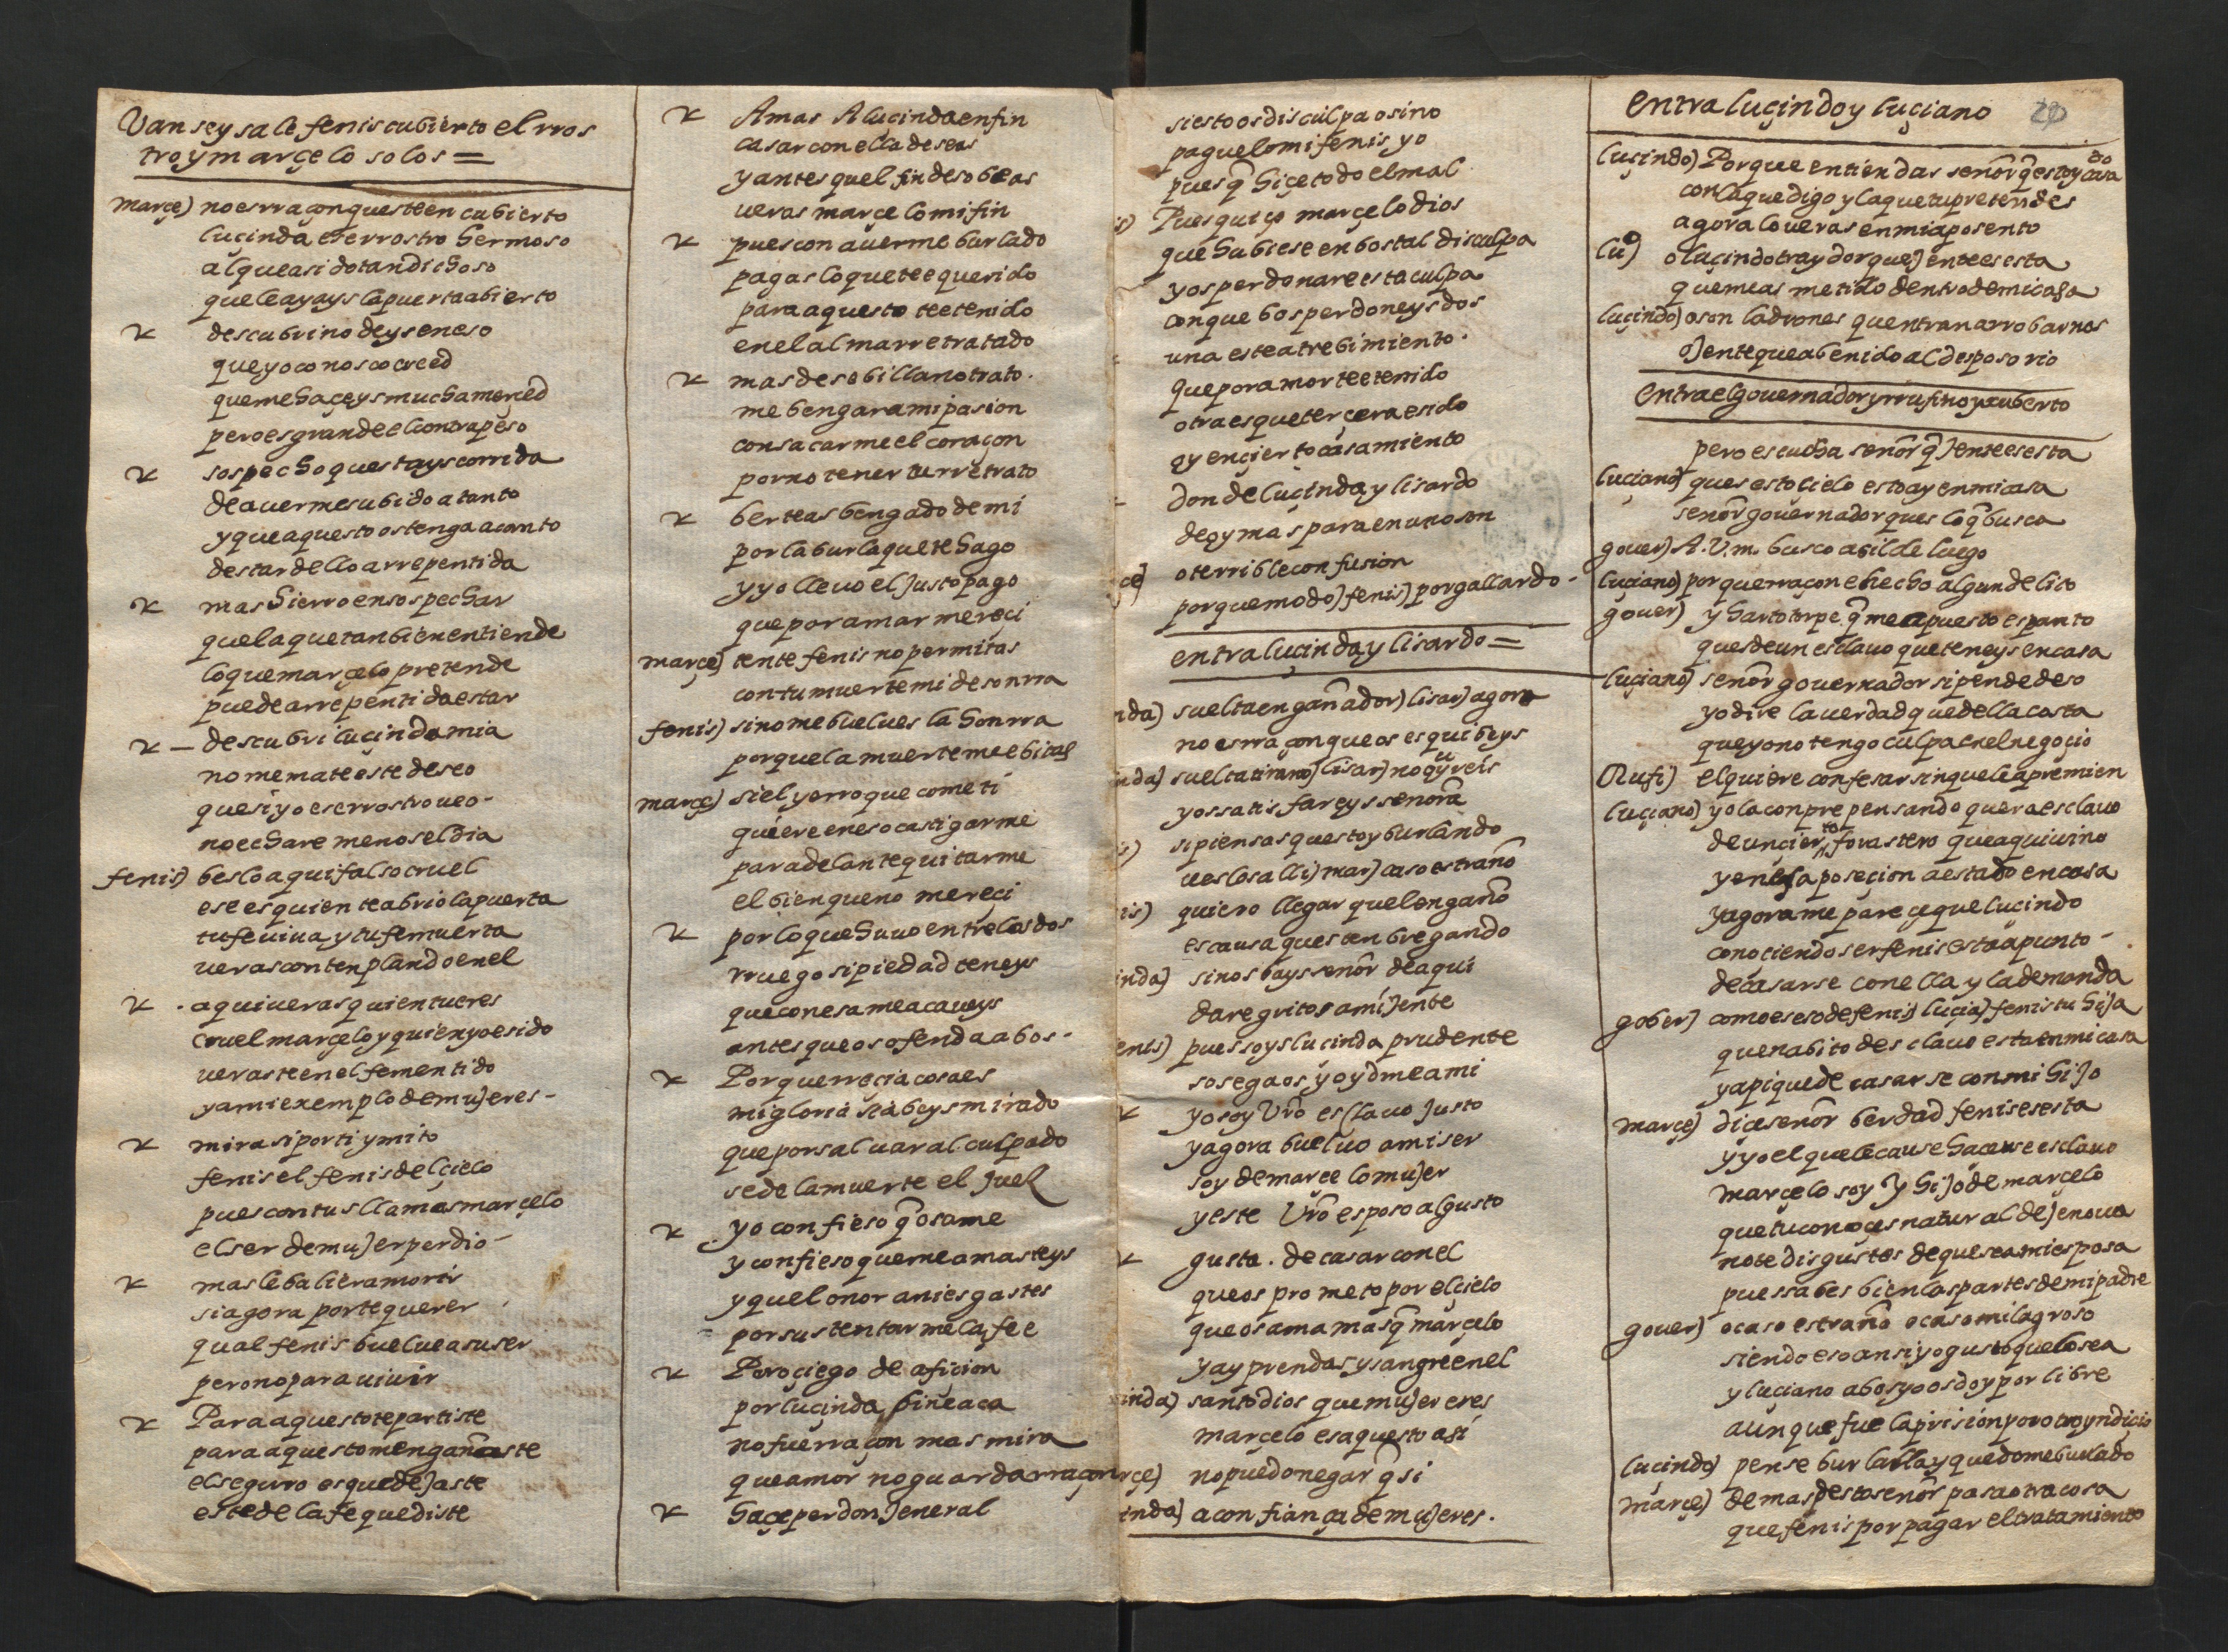 Van sey sale fenis cubierto el rros
tro y marçelo solos =
marçe) no es rraçon que esteen cubierto
luçinda ese rrostro hermoso
al que a sido tan dichoso
que le ayays la puerta abierto
descubri no deys en eso
que yo conosco creed
que me haçeys mucha merçed
pero es grande el contrapeso
sospecho questays corrida
de auerme subido a tanto
y que aquesto os tenga a canto
destar dello arrepentida
mas hierro en sospechar
que la que tan bien entiende
lo que marçelo pretende
puede arrepentida estar
descubri luçinda mia
no me mate este deseo
que si yo ese rrostro ueo
no echare menos el dia
fenis) beslo aqui falso cruel
ese es quien te abrio la puerta
tu fe uiua y tu fe muerta
ueras contenplando en el
aqui ueras quien tu eres
cruel marçelo y quien yo e sido
ueraste en el fementido
y a mi exemplo de mujeres
mira si por ti ymito
fenis el fenis del çielo
pues con tus llamas marçelo
el ser de mujer perdio
mas le baliera morir
si agora por te querer
qual fenis buelue a su ser
pero no para uiuir
Para aquesto te partiste
para aquesto mengañaste
el seguro es que dejaste
este de la fe que diste
Amas A lucinda en fin
casar con ella deseas
y antes quel fin deso beas
ueras marçelo mi fin
pues con auerme burlado
pagas lo que te e querido
para aquesto te e tenido
en el alma rretratado
mas dese billano trato
me bengara mi pasion
con sacarme el coraçon
por no tener tu rretrato
berteas bengado de mi
por la burla que te hago
y yo lleuo el justo pago
que por amar mereçi
marçe) tente fenis no permitas
con tu muerte mi desonrra
fenis) si no me buelues la honrra
porque la muerte me ebitas
marçe) si el yerro que cometi
quiere en eso castigarme
para delante quitarme
el bien que no mereçi
por lo que huuo entre los dos
rruego si piedad teneys
que con esa me acaueys
antes que os ofenda a bos
Porque rreçia cosa es
mi gloria si abeys mirado
que por saluar al culpado
se de la muerte el juez
yo confieso q̃ os ame
y confieso que me amasteys
y quel onor ariesgastes
por sustentarme la fee
Pero çiego de afiçion
por luçinda bine aca
no fue rraçon mas mira
que amor no guarda rraçon
haçe perdon jeneral
si esto os disculpa o si no
paguelo mi fenis yo
pues q̃ hiçe todo el mal
Pues quiço marçelo dios
que hubiese en bos tal disculpa
y os perdonare esta culpa
con que bos perdoneys dos
una este atrebimiento
que por amor te e tenido
otra es que terçera e sido
oy en çierto casamiento
donde luçinda y lisardo
de oy mas para en uno son
o terrible confusion
porque modo) fenis) por gallardo
entra luçinda y lisardo =
nda) suelta engañador) lisar) agora
no es rraçon que os esquibeys
nda) suelta tirano) lisar) no gritéis
yos satisfareys señora
si piensas questoy burlando
ueslos alli) mar) caso estraño
is) quiero llegar quel engaño
es causa questen bregando
inda) si nos bays señor de aqui
dare gritos a mi jente
enis) pues soys lucinda prudente
sosegaos y oydme a mi
yo soy Vr̃o esclauo justo
y agora bueluo a mi ser
soy de marcelo mujer
y este Vr̃o esposo al gusto
gusta de casar con el
que os prometo por el çielo
que os ama mas q̃ marçelo
y ay prendas y sangre en el
inda) santo dios que mujer eres
marçelo es aquesto asi
rçe) no puedo negar q̃ si
inda) a confiança de mujeres
entra luçindo y luçiano 20
luçindo) Porque entiendas señor q̃ estoy casado
con la que digo y la que tu pretendes
agora lo ueras en mi aposento
lu) o luçindo traydor que jente es esta
que me as metido dentro de mi casa
luçindo) o son ladrones quentran a rrobarnos
o jente que a benido al desposorio
entra el gouernador y rrufino y xuberto
pero escucha señor q̃ jente es esta
luçiano) ques esto çielo esto ay en mi casa
señor gouernador ques lo q̃ busca
gouer) A. V. m. busco asilde luego
luçiano) por que rraçon e hecho algun delito
gouer) y harto torpe q̃ me a puesto espanto
ques de un esclauo que teneys en casa
luçiano) señor gouernador si pende deso
yo dire la uerdad que della costa
que yo no tengo culpa en el negoçio
Rufi) el quiere confesar sin que le apremien
luçiano) yo lo conpre pensando quera esclauo
de un çierto forastero que aqui uino
y en esa poseçion a estado en casa
y agora me pareçe que luçindo
conoçiendo ser fenis esta a punto
de casarse con ella y la demanda
gober) como es eso de fenis) luçia) fenis tu hija
quen abito desclauo esta en mi casa
y a pique de casarse con mi hijo
marçe) diçe señor berdad fenis es esta
y yo el que le cause haçerse esclauo
marçelo soy y hijo de marçelo
que tu conoces natural de jenoua
no te disgustes de que sea mi esposa
pues sabes bien las partes de mi padre
gouer) o caso estraño o caso milagroso
siendo eso ansi yo gusto que lo sea
y luciano a bos yo os doy por libre
aunque fue la prision por otro yndiçio
luçindo) pense burlalla y quedome burlado
marçe) demas desto señor pasa otra cosa
que fenis por pagar el tratamiento